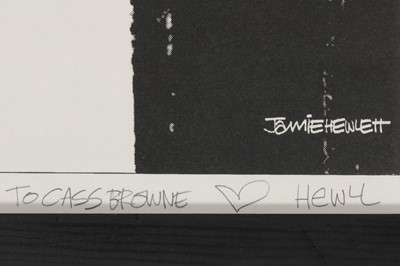 JAMIE HEWLETT
TO CASS BROWNE ♡ HEWLL